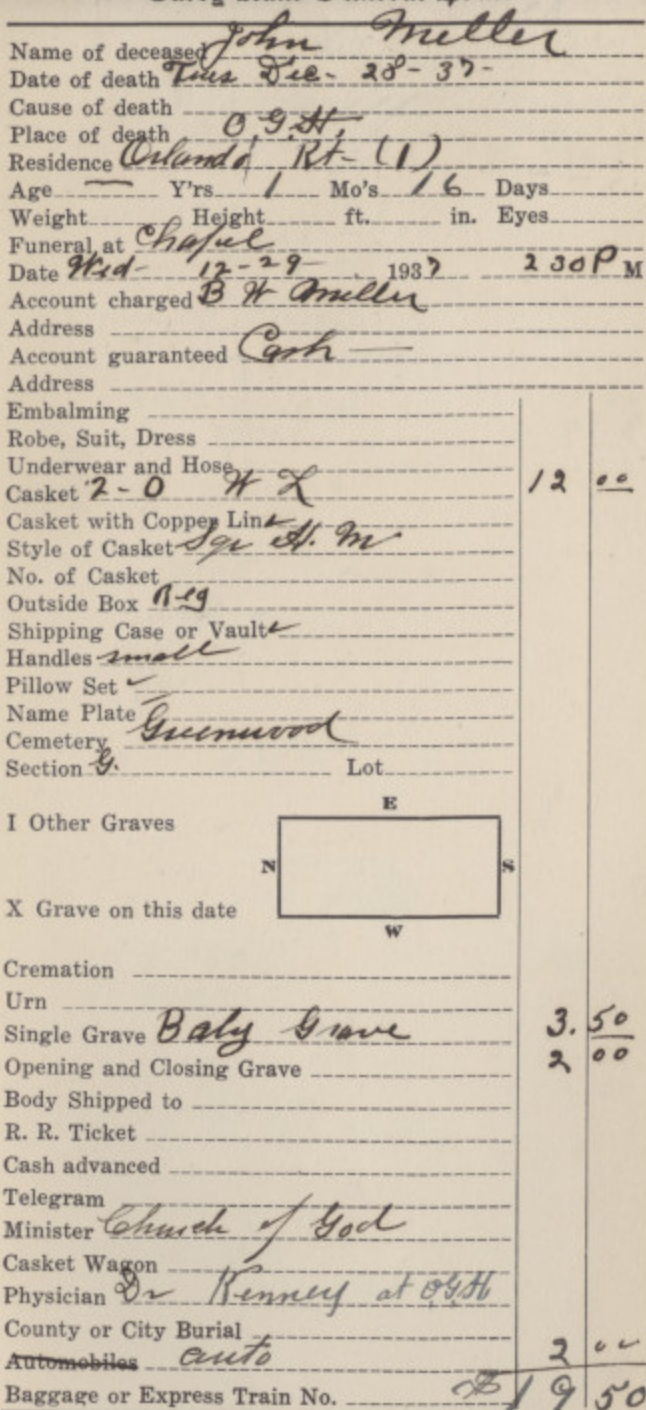 Name of deceased John Miller
Date of death Tues Dec- 28-37-
Cause of death
Place of death O.G.H.
Residence Orlando Rt- (1)
Age — Y'rs 1 Mo's 16 Days
Weight Height ft. in. Eyes
Funeral at Chapel
Date Wed- 12-29- 1937 2 30 P M
Account charged B W Miller
Address
Account guaranteed Cash —
Address
Embalming
Robe, Suit, Dress
Underwear and Hose
Casket 2-0 W L 12 00
Casket with Copper Line
Style of Casket Sqr H. M
No. of Casket
Outside Box Reg
Shipping Case or Vault
Handles small
Pillow Set
Name Plate
Cemetery Greenwood
Section G. Lot
E
I Other Graves
N S
X Grave on this date
W
Cremation
Urn
Single Grave Baby Grave 3.50
Opening and Closing Grave 2 00
Body Shipped to
R. R. Ticket
Cash advanced
Telegram
Minister Church of God
Casket Wagon
Physician Dr Kenney at OGH
County or City Burial
Automobiles auto 2 00
Baggage or Express Train No. $19 50